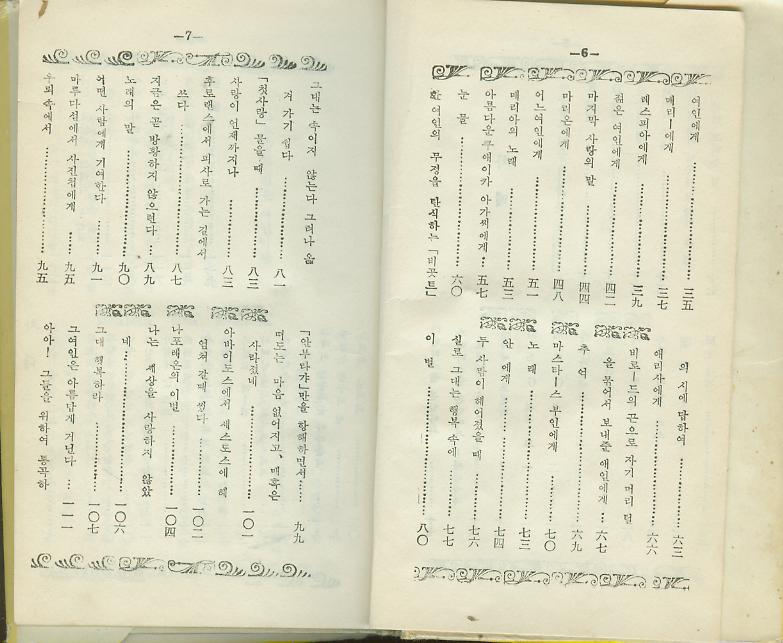 —6—
여인에게 ……… 三五
메리—에게 ……… 三七
레스피아에게 ……… 三九
젊은 여인에게 ……… 四二
마지막 사랑의 말 ……… 四四
마리온에게 ……… 四八
어느 여인에게 ……… 五一
메리아의 노래 ……… 五三
아름다운 쿠에이카 아가씨에게 … 五七
눈물 ……… 六〇
한 여인의 무정을 탄식하는 「비곳트」
의 시에 답하여 ……… 六三
애리사에게 ……… 六六
비로—드의 끈으로 자기 머리 털
을 묶어서 보내준 애인에게 … 六七
추억 ……… 六九
마스타—스 부인에게 ……… 七〇
노래 ……… 七三
안에게 ……… 七四
두 사람이 헤어졌을 때 ……… 七六
실로 그대는 행복 속에 ……… 七七
이별 ……… 八〇
—7—
그대는 속이지 않는다 그러나 옮
겨 가기 쉽다 ……… 八一
「첫사랑」 물을 때 ……… 八三
사랑이 언제까지나 ……… 八三
후로랜스에서 피사로 가는 길에서
쓰다 ……… 八七
지금은 곧 방황하지 않으련다 … 八九
노래의 말 ……… 九〇
어떤 사람에게 기여한다 ……… 九一
마루다섬에서 사진첩에게 …… 九五
우뢰 속에서 ……… 九五
「안부타갸」만을 항해하면서 …… 九九
떠도는 마음 없어지고, 매혹은
사라졌네 ……… 一〇一
아바이도스에서 세스토스에 헤
엄쳐 갈때 썼다 ……… 一〇二
나포래온의 이별 ……… 一〇四
나는 세상을 사랑하지 않았
네 ……… 一〇六
그대 행복하라 ……… 一〇七
그여인은 아름답게 거닌다 … 一一一
아아! 그들을 위하여 통곡하